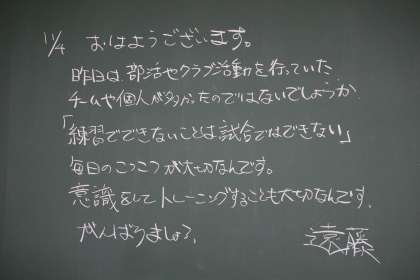 11/4 おはようございます。
昨日は、部活やクラブ活動を行っていた
チームや個人が多かったのではないでしょうか。
「練習でできないことは試合ではできない」
毎日のこつこつが大切なんです。
意識をしてトレーニングすることも大切なんです。
がんばりましょう。
遠藤